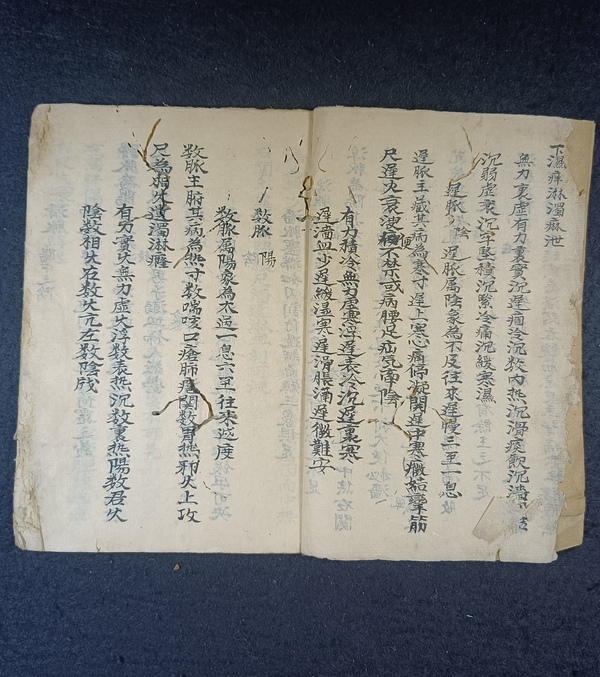 下濕痒淋濁痳泄
無力裏虛有力裏實沉遲痼冷沉数内热沉滑痰飲沉濇
沉弱虛衰沉牢坚積沉緊冷痛沉緩寒濕
遲脉 陰 遲脉属陰象為不及往來遲慢三至一息
遲脉主臓其病為寒寸遲上寒心痛停凝関遲中寒癥結攣筋
尺遲火衰溲便不禁或病腰足疝氣牽陰
有力積冷無力虛寒浮遲表冷沉遲裏寒
遲濇血少遲緩濕寒遲滑脹滿遲微難安
数脉 陽
数脉属陽象為太過一息六至往來越度
数脉主腑其病為热寸数喘咳口瘡肺癰関数胃热邪火上攻
尺為相火遺濁淋癃
有力實火無力虛火浮数表热沉数裏热陽数君火
陰数相火右数火亢左数陰戕